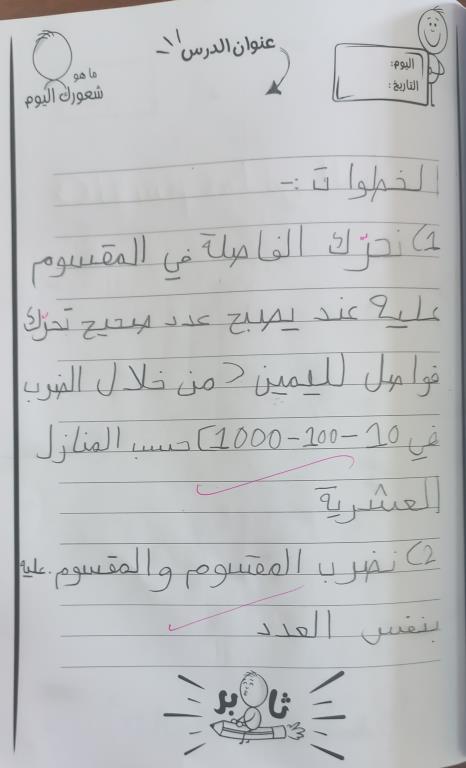 عنوان الدرس
اليوم:
التاريخ:
ما هو
شعورك اليوم
الخطوات :-
1) نحرّك الفاصلة في المقسوم
علية عند يصبح عدد صحيح تحرّك
فواصل لليمين (من خلال الضرب
في 10-100-1000) حسب المنازل
العشرية
2) نضرب المقسوم والمقسوم علية.
بنفس العدد
ثابر